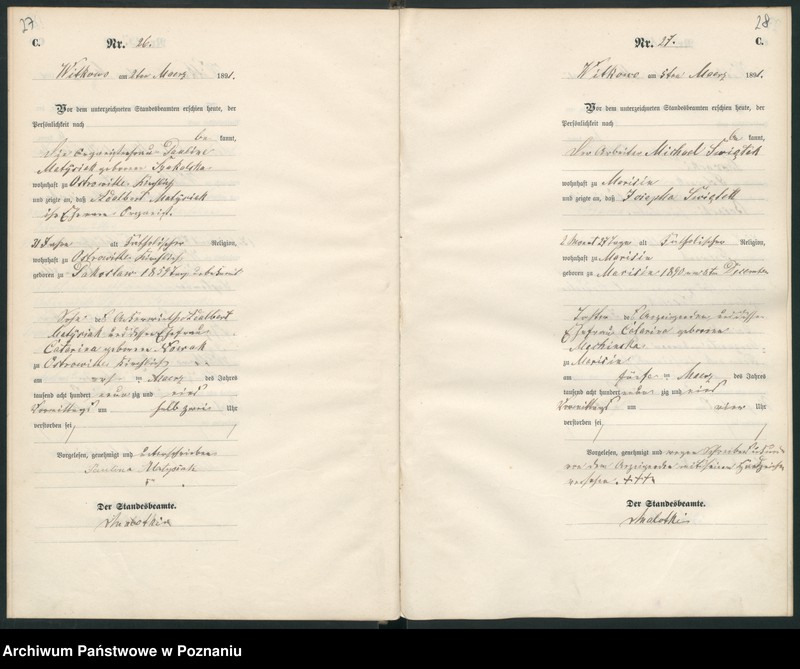 27
C. Nr. 26.
Witkowo am 2ten Maerz 1891.
Vor dem unterzeichneten Standesbeamten erschien heute, der
Persönlichkeit nach
be kannt,
Die Organistenfrau Pauline
Matysiak geborene
wohnhaft zu Ostrowitte
und zeigte an, daß Adalbert Matysiak
ihr Ehemann Organist.
31 Jahre alt katholischer Religion,
wohnhaft zu Ostrowitte
geboren zu
Sohn
Matysiak und dessen Ehefrau
Catarina geborene Nowak
zu Ostrowitte
am Maerz des Jahres
tausend acht hundert neun zig und eins
Vormittags um halb zwei Uhr
verstorben sei
Vorgelesen, genehmigt und unterschrieben
Paulina Matysiak
Der Standesbeamte.
28
C. Nr. 27.
Witkowo am 5ten Maerz 1891.
Vor dem unterzeichneten Standesbeamten erschien heute, der
Persönlichkeit nach
be kannt,
Der Arbeiter Michael Swiątek
wohnhaft zu Morisin
und zeigte an, daß Josepha Swiątek
2 Monat 27 Tage alt katholischer Religion,
wohnhaft zu Morisin
geboren zu Morisin 1890 am Dezember
Tochter des Anzeigenden und dessen
Ehefrau Catarina geborene
zu Morisin
am Maerz des Jahres
tausend acht hundert neun zig und eins
Vormittags um Uhr
verstorben sei
Vorgelesen, genehmigt und wegen
von dem Anzeigenden mit seinem Handzeichen
versehen. +++
Der Standesbeamte.
Archiwum Państwowe w Poznaniu